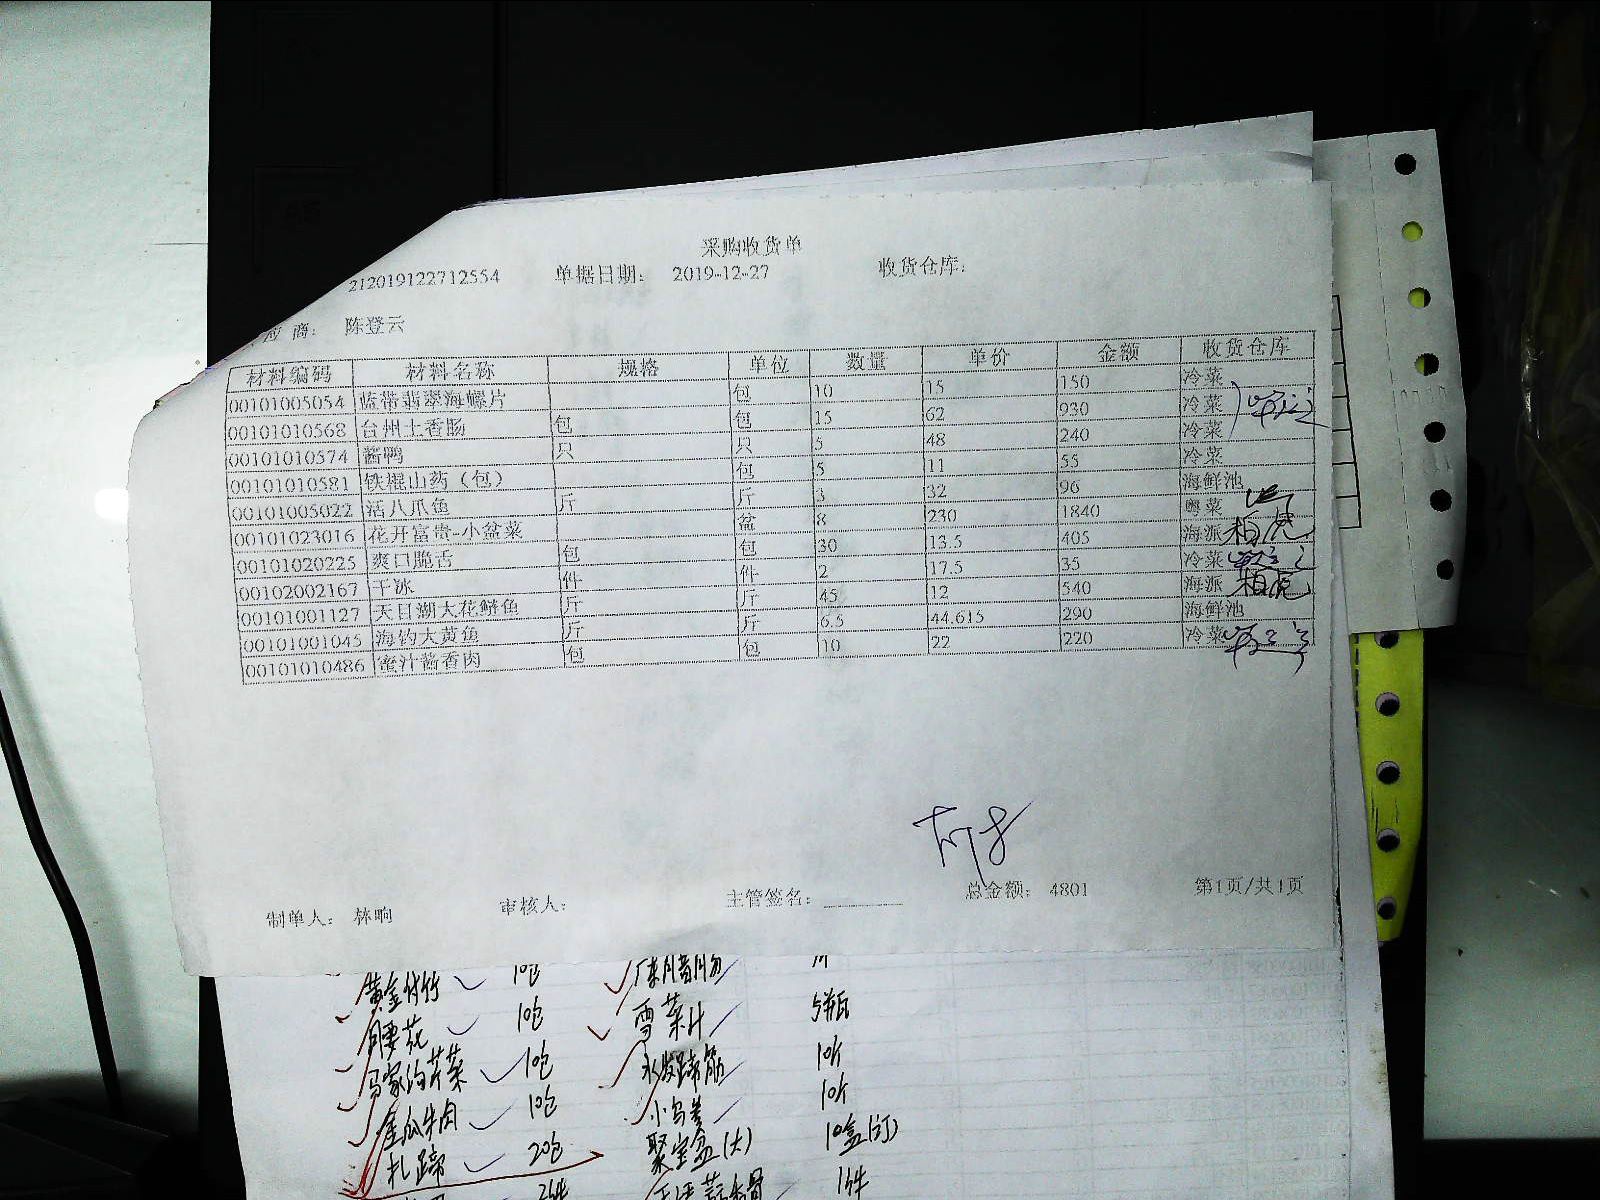 采购收货单
212019122712554 单据日期： 2019-12-27 收货仓库：
应 商： 陈登云
材料编码 材料名称 规格 单位 数量 单价 金额 收货仓库
00101005054 蓝带翡翠海螺片 包 10 15 150 冷菜
00101010568 台州土香肠 包 包 15 62 930 冷菜
00101010574 酱鸭 只 只 5 48 240 冷菜
00101010581 铁棍山药（包） 包 5 11 55 冷菜
00101005022 活八爪鱼 斤 斤 3 32 96 海鲜池
00101023016 花开富贵-小盆菜 盆 8 230 1840 粤菜
00101020225 爽口脆舌 包 包 30 13.5 405 海派
00102002167 干冰 件 件 2 17.5 35 冷菜
00101001127 天目湖大花鲢鱼 斤 斤 45 12 540 海派
00101001045 海钓大黄鱼 斤 斤 6.5 44.615 290 海鲜池
00101010486 蜜汁酱香肉 包 包 10 22 220 冷菜
制单人： 林响 审核人： 主管签名： 总金额： 4801 第1页/共1页
黄金竹 10包
腰花 10包 雪菜汁 5瓶
马家沟芹菜 10包 水发蹄筋 10斤
金瓜牛肉 10包 小乌参 10斤
扎蹄 20包 聚宝盆(大) 10盒(订)